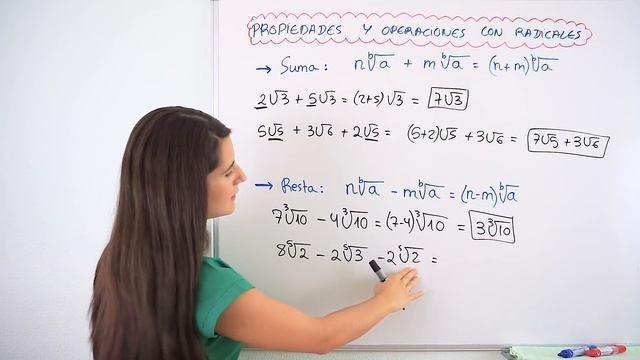 PROPIEDADES Y OPERACIONES CON RADICALES
→ Suma: n ᵇ√a + m ᵇ√a = (n+m) ᵇ√a
2√3 + 5√3 = (2+5)√3 = 7√3
5√5 + 3√6 + 2√5 = (5+2)√5 + 3√6 = 7√5 + 3√6
→ Resta: n ᵇ√a - m ᵇ√a = (n-m) ᵇ√a
7 ³√10 - 4 ³√10 = (7-4) ³√10 = 3 ³√10
8 ⁵√2 - 2 ⁵√3 - 2 ⁵√2 =